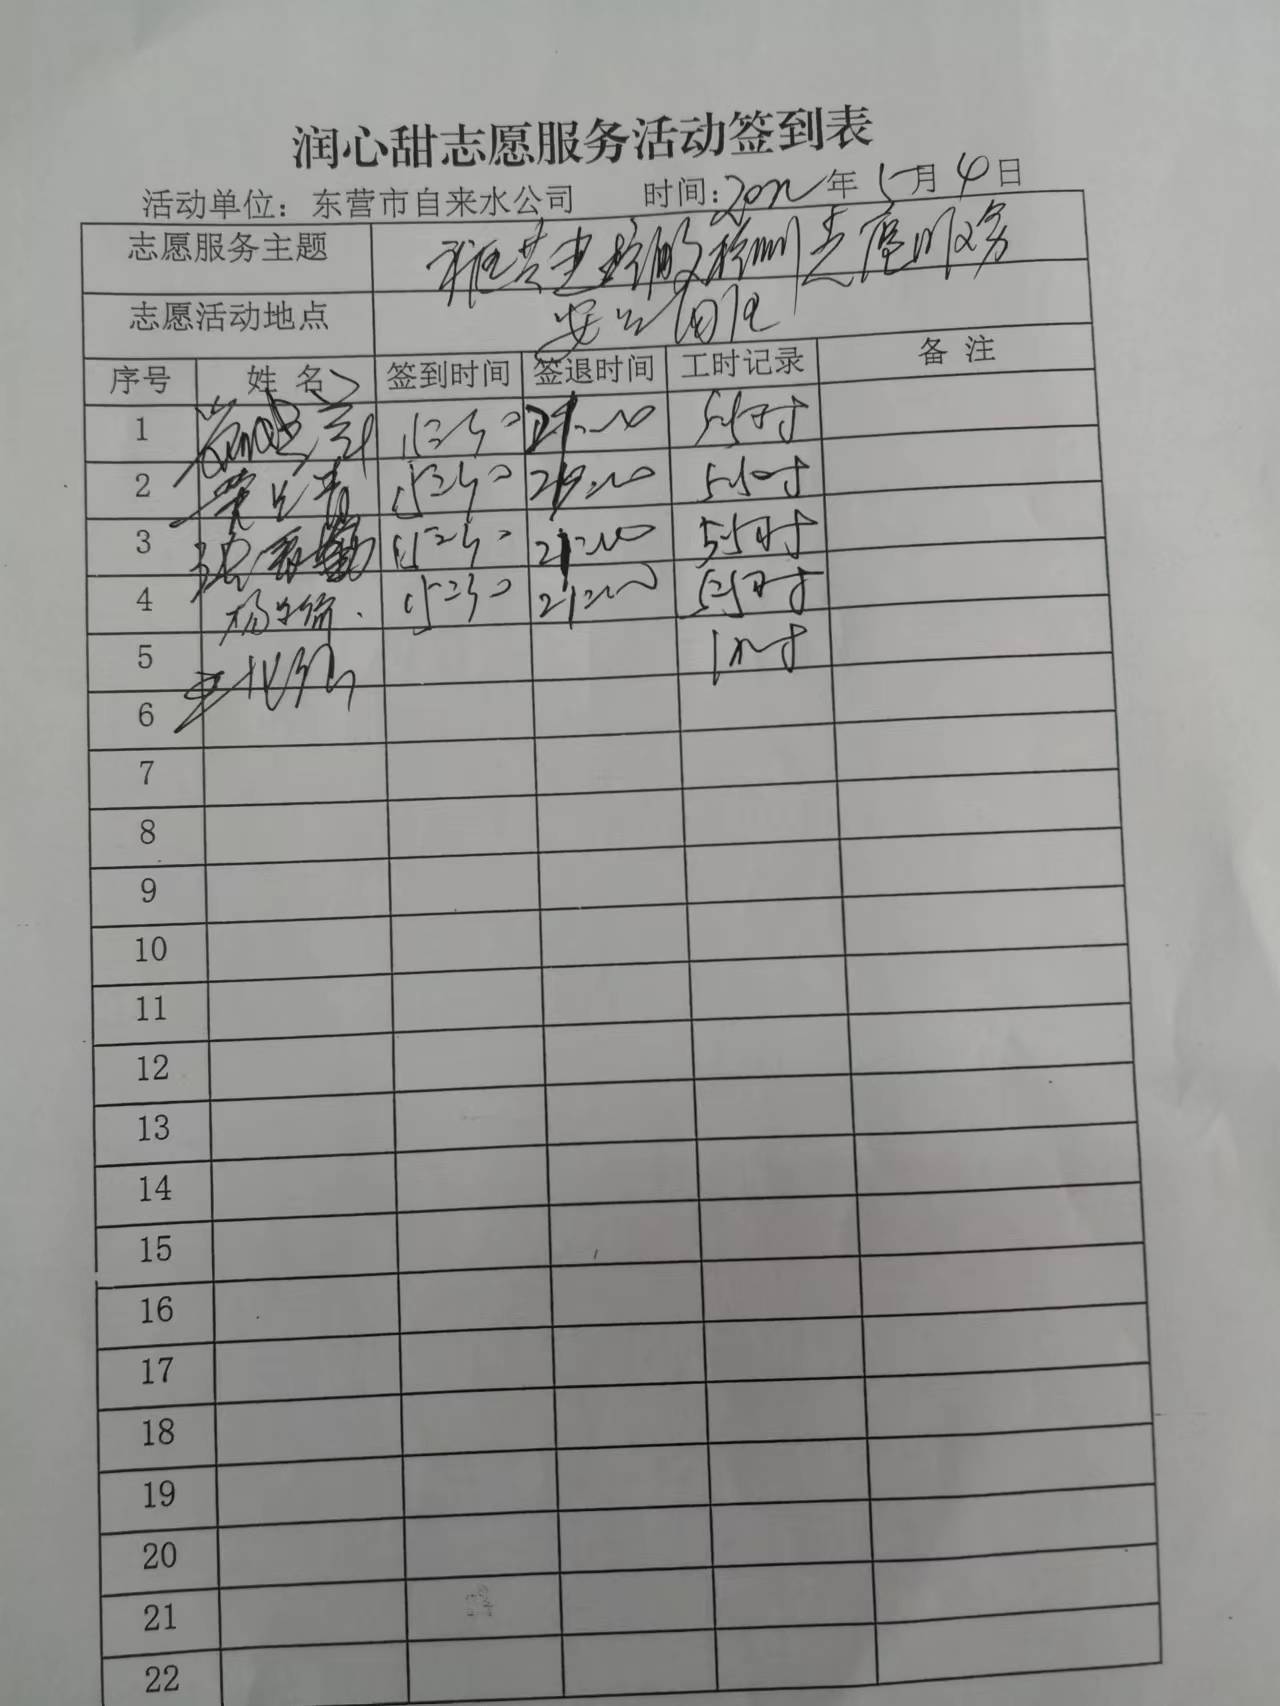 润心甜志愿服务活动签到表
活动单位：东营市自来水公司 时间:2022年5月4日
志愿服务主题 志愿服务
志愿活动地点
序号 姓名 签到时间 签退时间 工时记录 备注
1 15:30 21:00 5.5小时
2 15:30 21:00 5.5小时
3 15:30 21:00 5.5小时
4 15:30 21:00 5.5小时
5 1小时
6
7
8
9
10
11
12
13
14
15
16
17
18
19
20
21
22